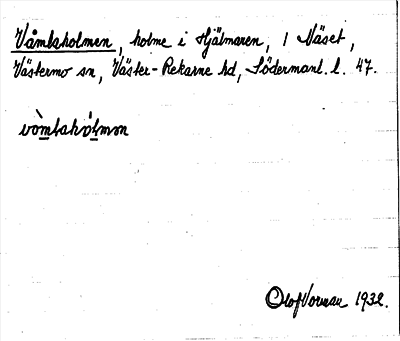 Våmbsholmen, holme i Hjälmaren, 1 Näset,
Västermo sn, Väster-Rekarne hd, Södermanl. l. 47.
vòmbshólmen
Olof Vorman 1932.